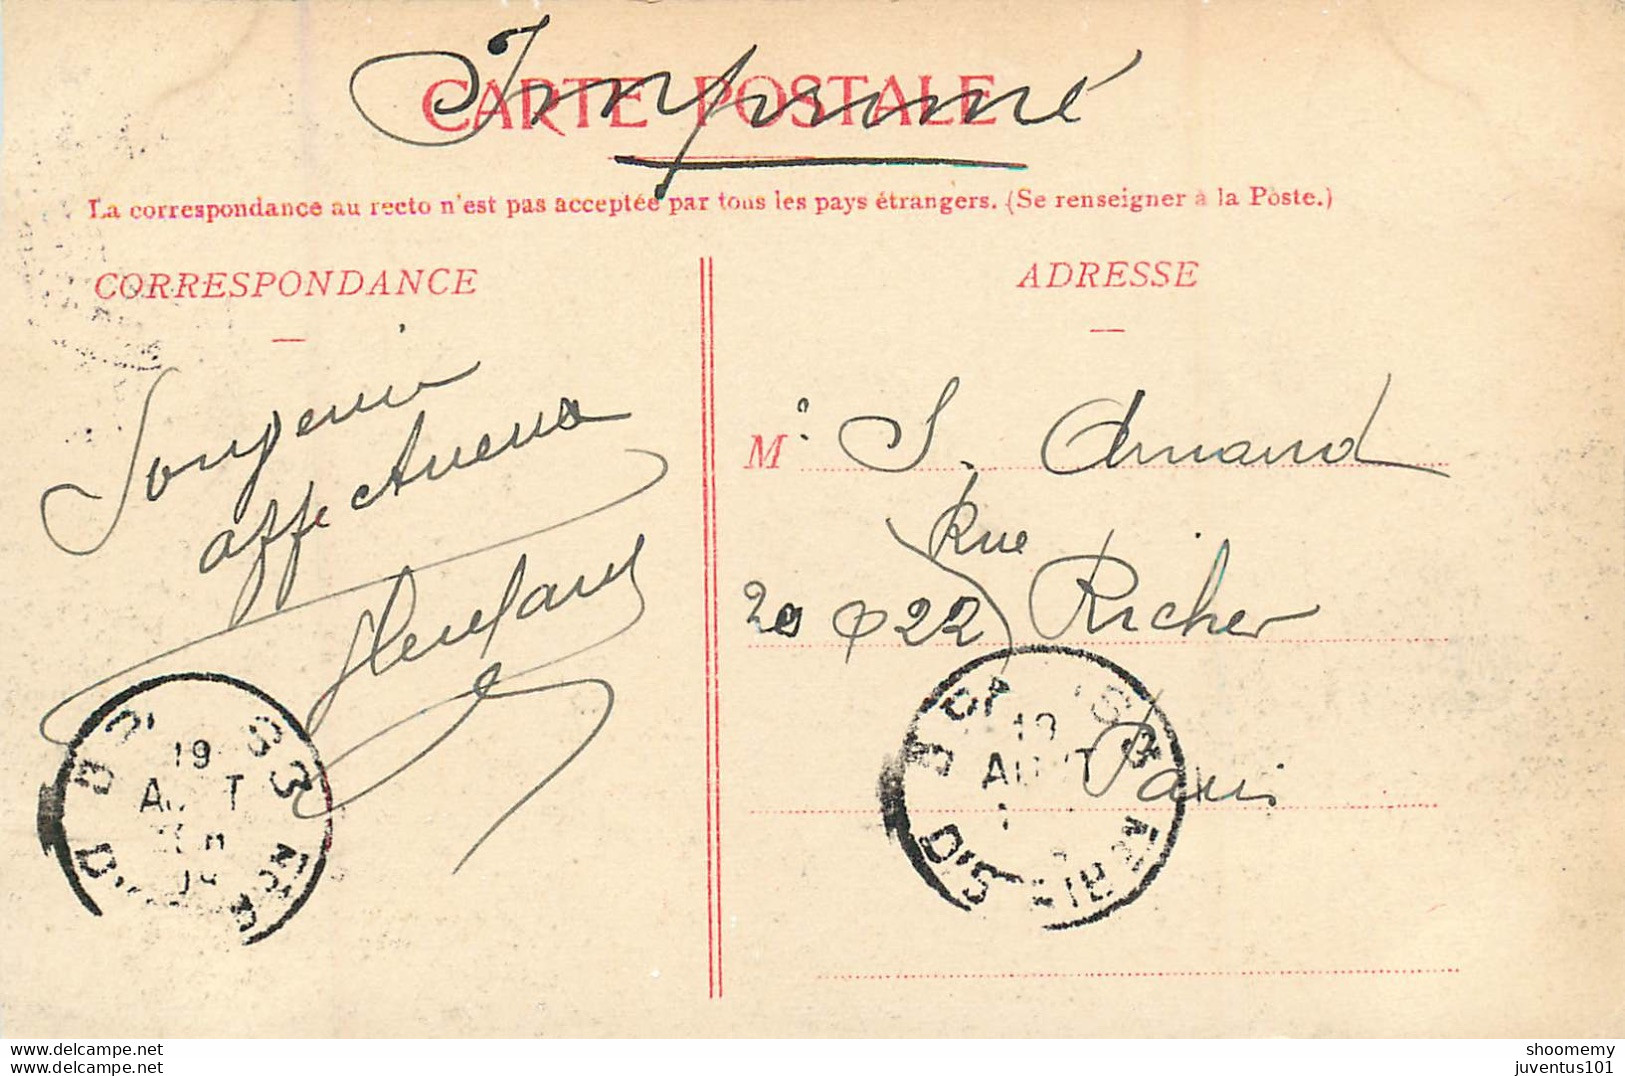 Imprimé
CARTE POSTALE
La correspondance au recto n'est pas acceptée par tous les pays étrangers. (Se renseigner à la Poste.)
CORRESPONDANCE
ADRESSE
Souvenir
affectueux
M. S. Armand
Rue
20 & 22 Richer
Paris
19
AOUT
19
AOUT
delcampe.net
shoomemy
juventus101